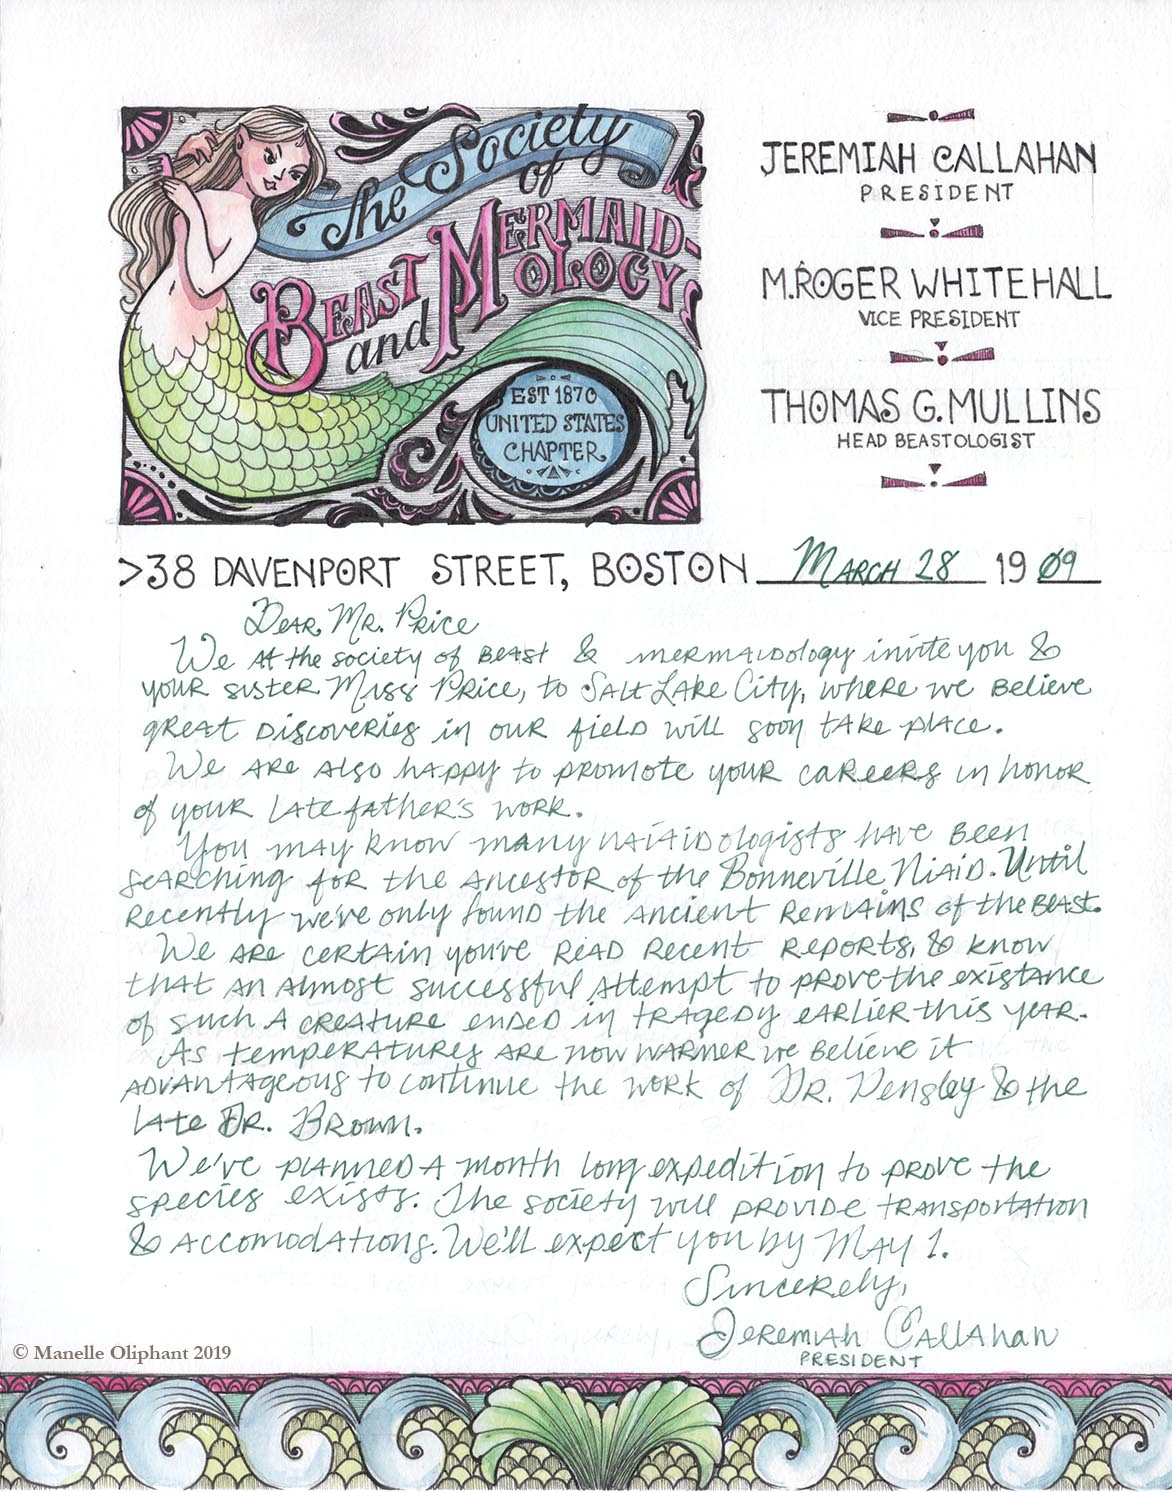 The Society
of
Beast
and
Mermaid-
ology
EST 1870
UNITED STATES
CHAPTER
JEREMIAH CALLAHAN
PRESIDENT
M. ROGER WHITEHALL
VICE PRESIDENT
THOMAS G. MULLINS
HEAD BEASTOLOGIST
>38 DAVENPORT STREET, BOSTON March 28 1909
Dear Mr. Price
We at the society of Beast & mermaidology invite you &
your sister Miss Price, to Salt Lake City, where we believe
great discoveries in our field will soon take place.
We are also happy to promote your careers in honor
of your late father's work.
You may know many naiaidologists have been
searching for the ancestor of the Bonneville Niaid. Until
recently we've only found the ancient remains of the beast.
We are certain you've read recent reports, & know
that an almost successful attempt to prove the existance
of such a creature ended in tragedy earlier this year.
As temperatures are now warmer we believe it
advantageous to continue the work of Dr. Densley & the
late Dr. Brown.
We've planned a month long expedition to prove the
species exists. The society will provide transportation
& accomodations. We'll expect you by May 1.
Sincerely,
Jeremiah Callahan
PRESIDENT
© Manelle Oliphant 2019